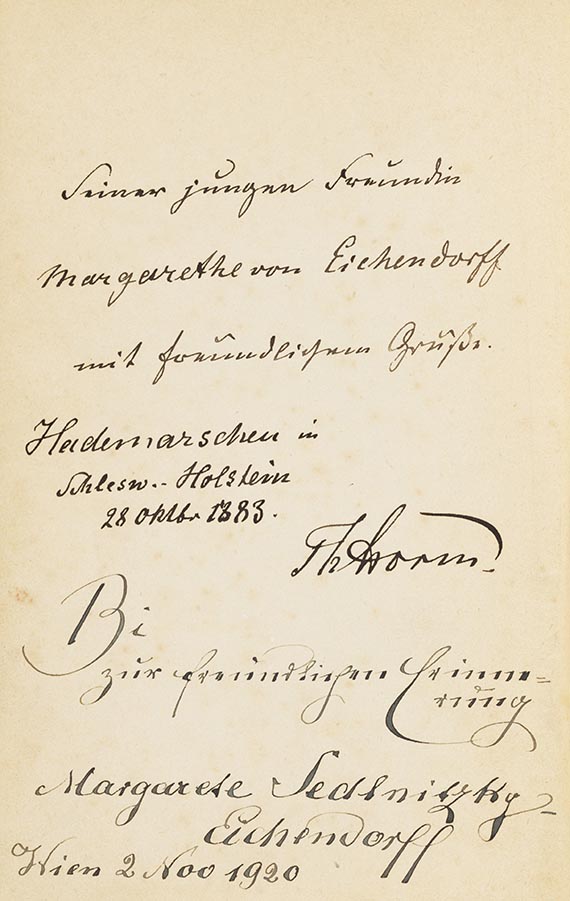 Seiner jungen Freundin
Margarethe von Eichendorff
mit freundlichem Gruße.
Hademarschen in
Schlesw.-Holstein
28 Oktbr 1883.
ThStorm.
Bi
zur freundlichen Erinne=
rung
Margarete Sedlnitzky-
Eichendorff
Wien 2 Nov 1920